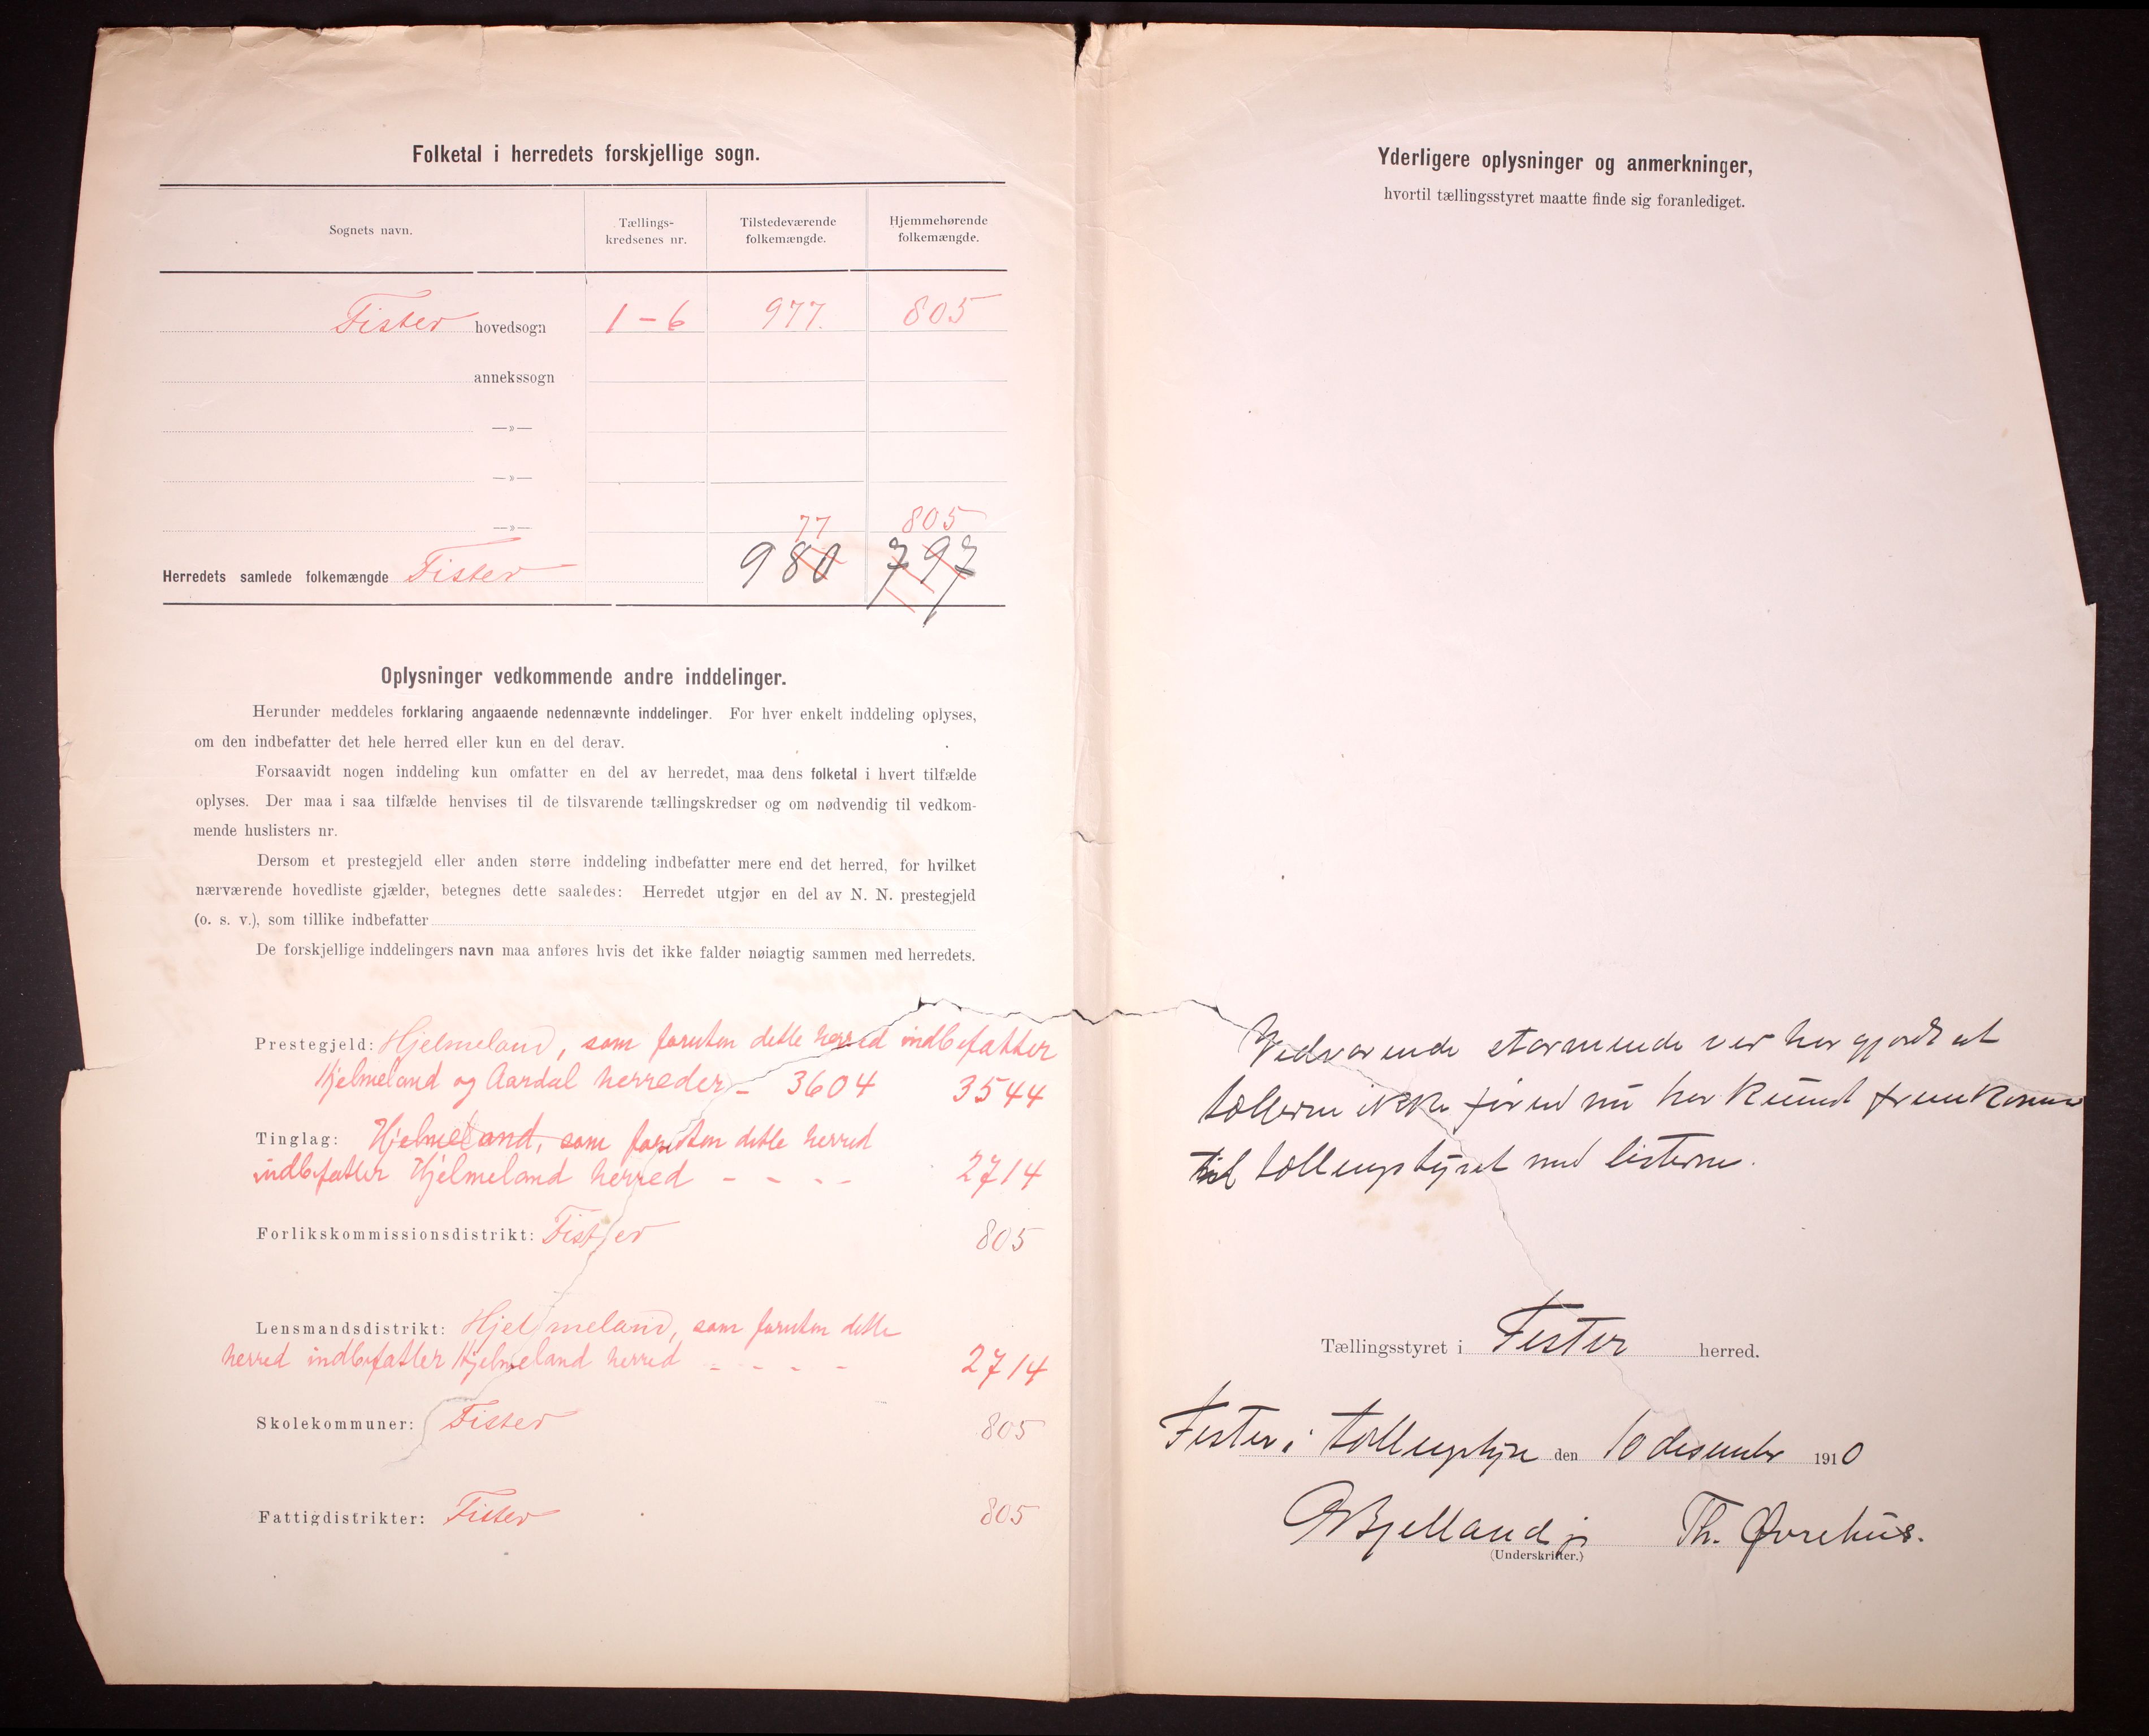 Folketal i herredets forskjellige sogn.
Sognets navn.
Tællings-
kredsenes nr.
Tilstedeværende
folkemængde.
Hjemmehørende
folkemængde.
Fister hovedsogn 1-6 977. 805
annekssogn
—»—
—»—
—»—
77 805
Herredets samlede folkemængde Fister 980 797
Oplysninger vedkommende andre inddelinger.
Herunder meddeles forklaring angaaende nedennævnte inddelinger. For hver enkelt inddeling oplyses,
om den indbefatter det hele herred eller kun en del derav.
Forsaavidt nogen inddeling kun omfatter en del av herredet, maa dens folketal i hvert tilfælde
oplyses. Der maa i saa tilfælde henvises til de tilsvarende tællingskredser og om nødvendig til vedkom-
mende huslisters nr.
Dersom et prestegjeld eller anden større inddeling indbefatter mere end det herred, for hvilket
nærværende hovedliste gjælder, betegnes dette saaledes: Herredet utgjør en del av N. N. prestegjeld
(o. s. v.), som tillike indbefatter
De forskjellige inddelingers navn maa anføres hvis det ikke falder nøiagtig sammen med herredets.
Prestegjeld: Hjelmeland, som foruten dette herred indbefatter
Hjelmeland og Aardal herreder - 3604 3544
Tinglag: Hjelmeland, som foruten dette herred
indbefatter Hjelmeland herred - - - - 2714
Forlikskommissionsdistrikt: Fister 805
Lensmandsdistrikt: Hjelmeland, som foruten dette
herred indbefatter Hjelmeland herred - - - - 2714
Skolekommuner: Fister 805
Fattigdistrikter: Fister 805
Yderligere oplysninger og anmerkninger,
hvortil tællingsstyret maatte finde sig foranlediget.
Vedvarende stormende ver har gjordt at
tællerne ikke før end nu har kunnet fremkomme
til tællingstyret med listerne.
Tællingsstyret i Fister herred.
Fister i tællingstyre den 10 desember 1910
Bjelland jr Th. Øvrehus.
(Underskrifter.)